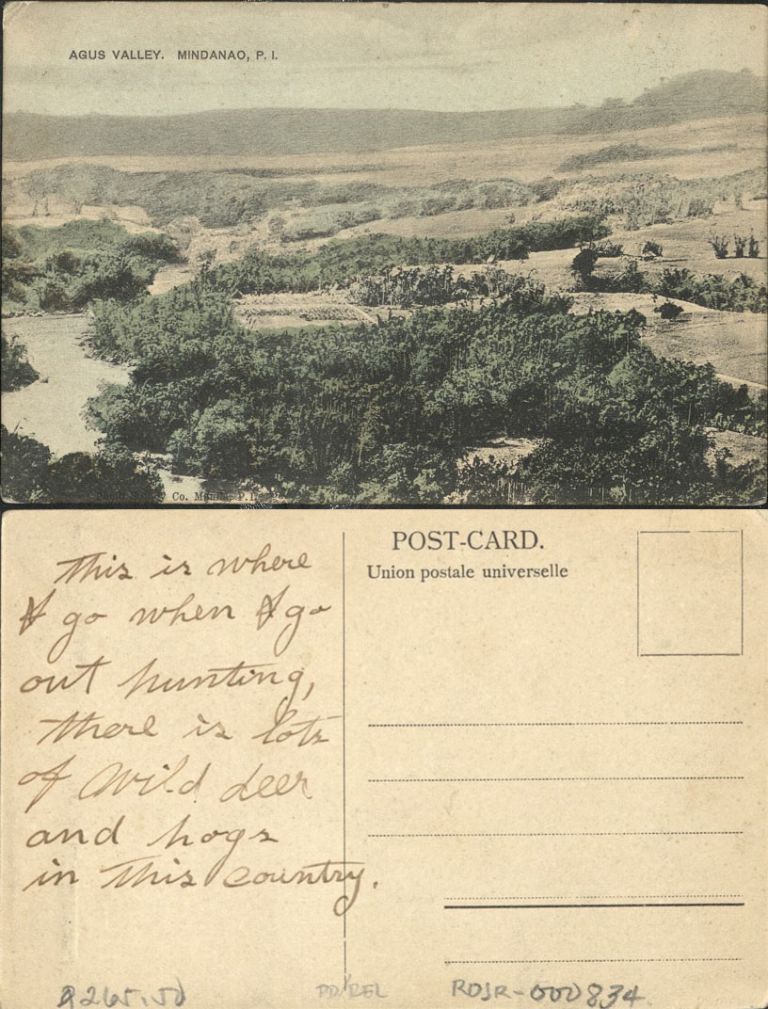 AGUS VALLEY. MINDANAO, P. I.
Co. Manila P.I.
POST-CARD.
Union postale universelle
This is where
I go when I go
out hunting,
there is lots
of wild deer
and hogs
in this country.
RDJR-000834